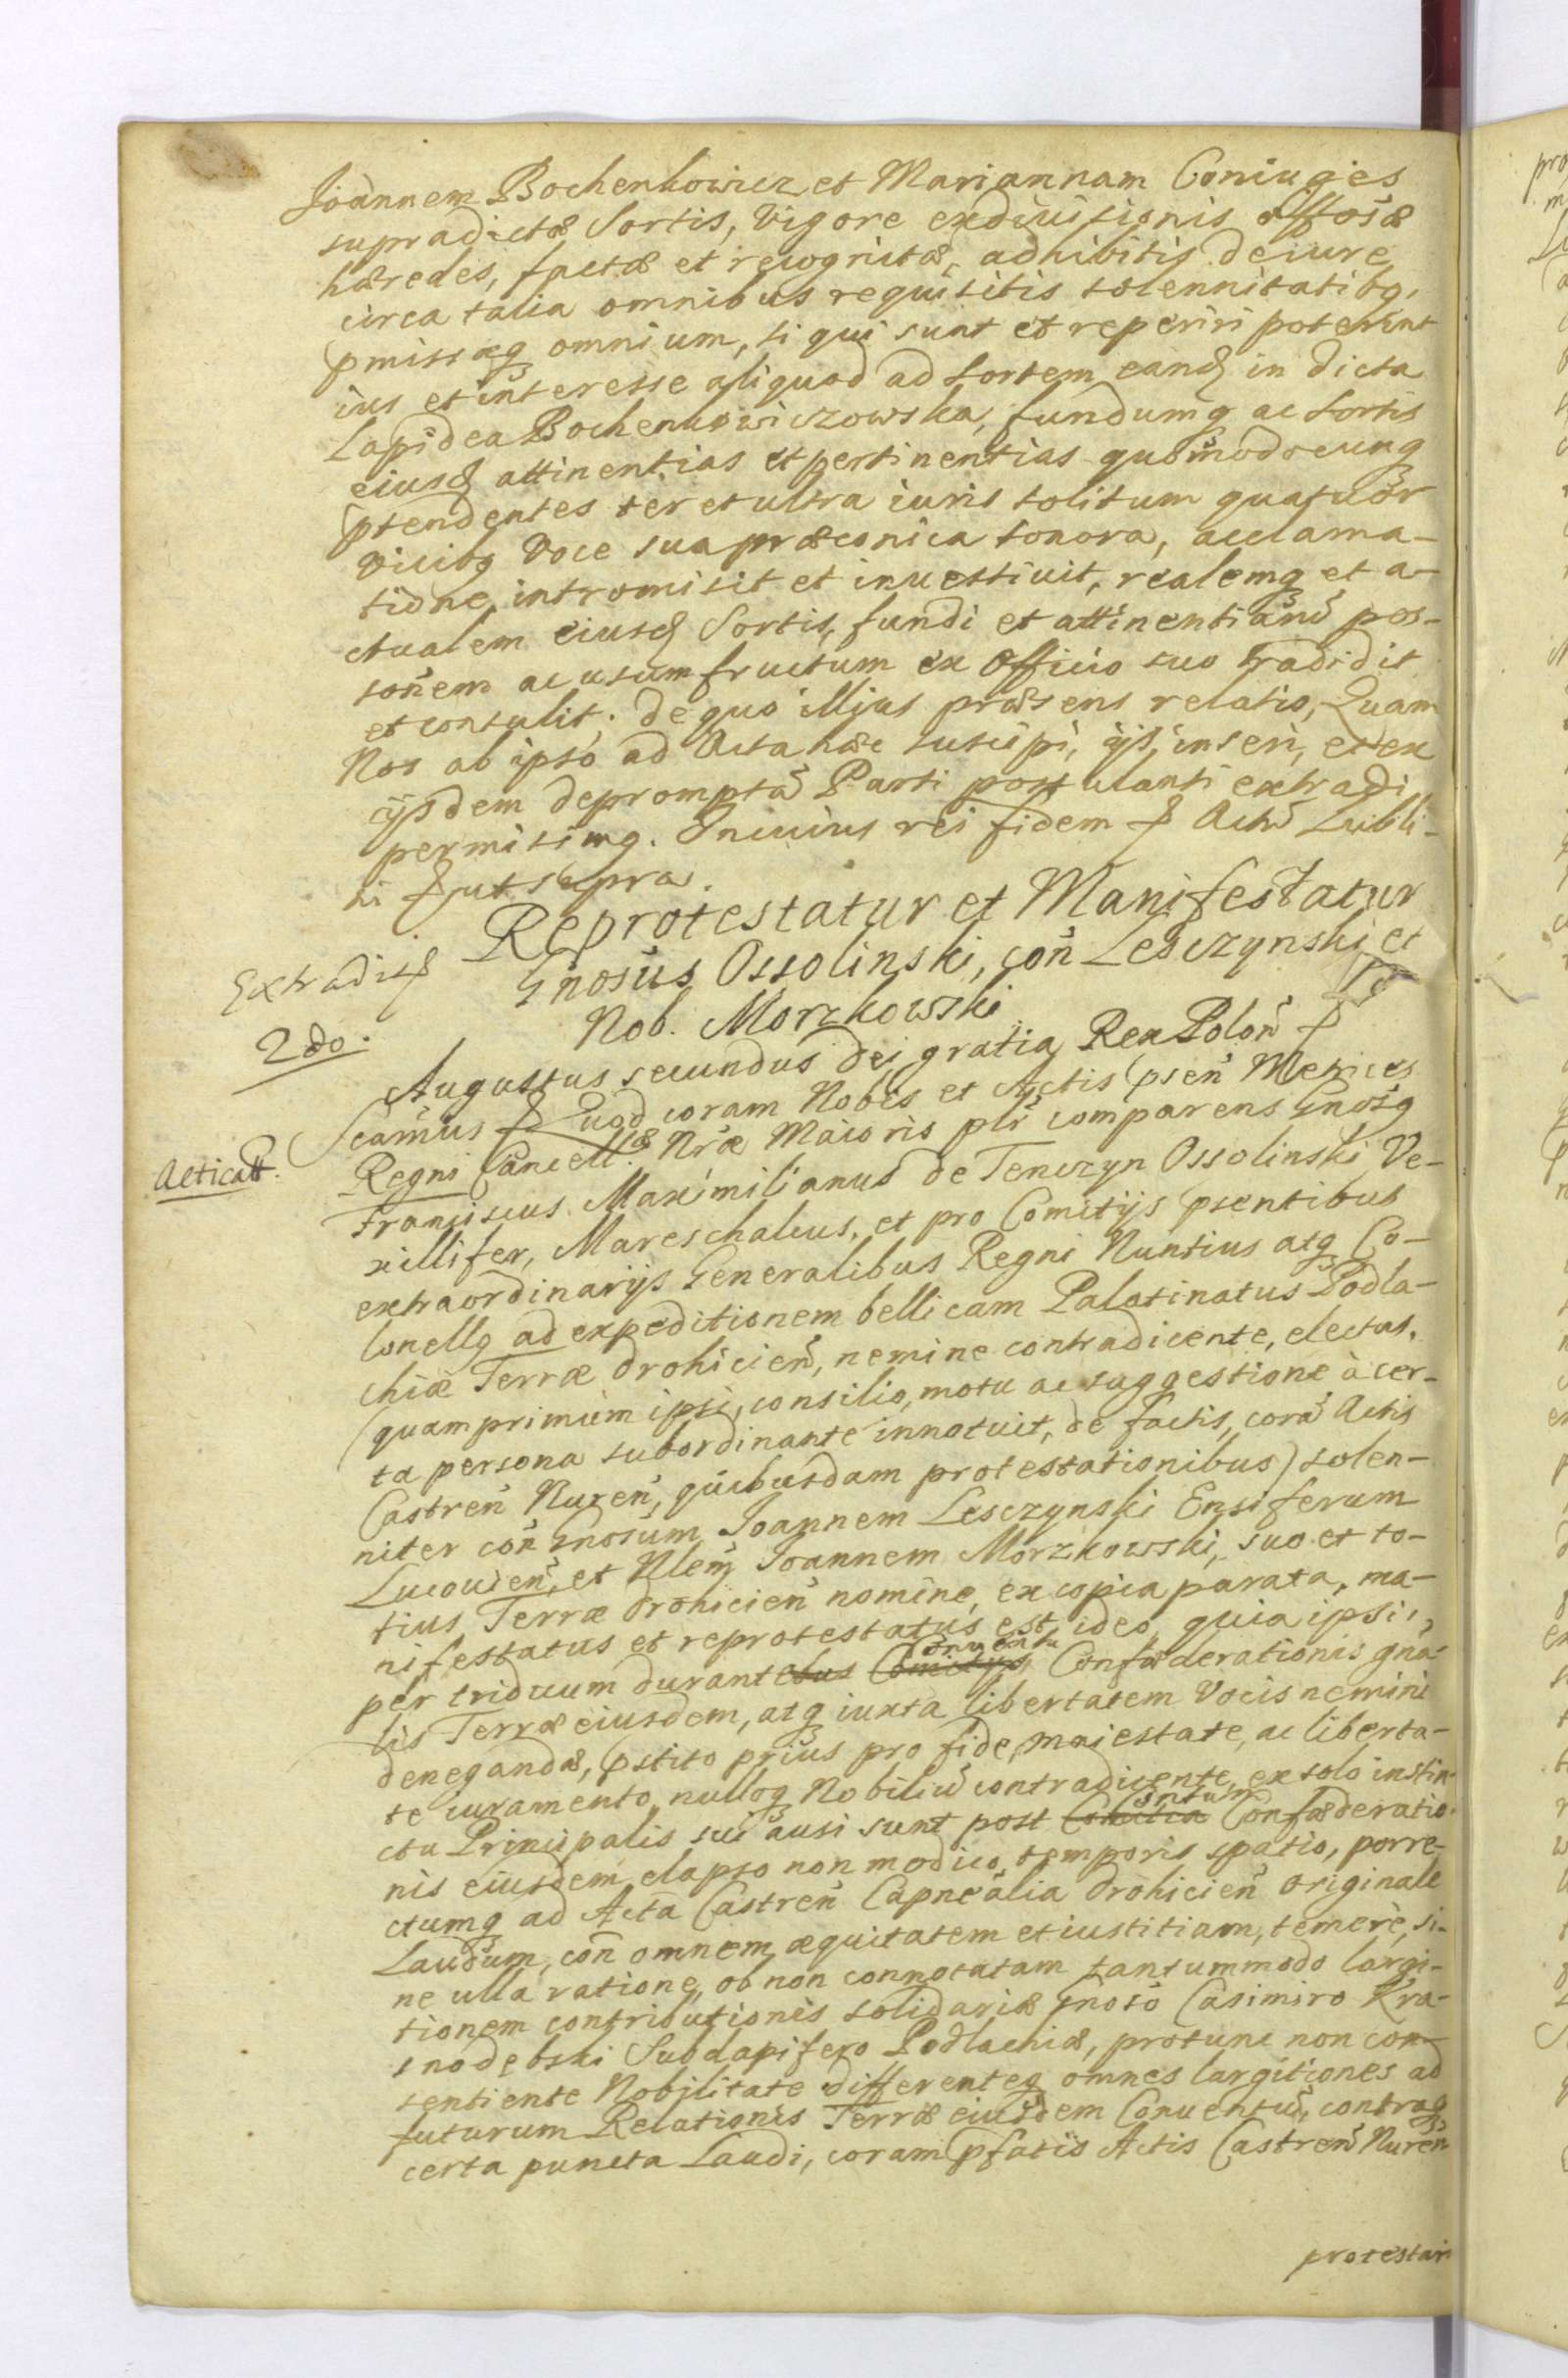 Joannem Bochenkowicz et Mariannam Coniuges
supradictæ Sortis, Vigore exdivisionis offosæ
hæredes, factæ et recognitæ, adhibitis de iure
circa talia omnibus requisitis solennitatibq,
pmissæq omnium, si qui sunt et reperiri poterint
ius et interesse aliquod ad sortem eand in dicta
Lapidea Bochenkowiczowska, fundumq ac sortis
eiusd attinentias et pertinentias quomodocunq
ptendentes ter et ultra iuris solitum quatuor
vicibq Voce sua præconica sonora, acclama-
tione intromisit et inuestiuit, realemq et a-
ctualem eiusd Sortis, fundi et attinentiarū pos-
sonem ac usumfructum ex Officio suo tradidit
et contulit. De quo illius præsens relatio, Quam
Nos ab ipso ad Acta hæc suscipi, ijs, inseri, et ex
ijsdem depromptā Parti postulanti extradi
permisimq. In cuius rei fidem Actū Lubli-
ni ut supra.
Extradit
Reprotestatur et Manifestatur
Gnosus Ossolinski, con Lesczynski et
2do.
Nob. Morzkowski
Augustus secundus Dei gratia Rex Polon
Acticatt.
Scamus Quod coram Nobis et Actis psen Metrices
Regni Cancell. Nræ Maioris plr comparens Gnosq
Franciscus Maximilianus de Tenczyn Ossolinski Ve-
xillifer, Mareschalcus, et pro Comitijs psentibus
extraordinarijs Generalibus Regni Nuntius atq Co-
lonellq ad expeditionem bellicam Palatinatus Podla-
chiæ Terræ Drohicien, nemine contradicente, electus,
(quamprimum ipsi, consilio, motu ac suggestione à cer-
ta persona subordinante innotuit, de factis, corā Actis
Castren Nuren, quibusdam protestationibus) solen-
niter con Gnosum Joannem Lesczynski Ensiferum
Lucouien, et Nlem Joannem Morzkowski, suo et to-
tius Terræ Drohicien nomine, ex copia parata, ma-
nifestatus et reprotestatus est, ideo, quia ipsi,
per triduum durantebus Comitijs Conuentu Confæderationis gna-
lis Terræ eiusdem, atq iuxta libertatem Vocis nemini
denegandæ, pstito prius pro fide, maiestate, ac liberta-
te iuramento, nulloq Nobiliū contradicente, ex solo instin-
ctu Principalis sui ausi sunt post Comitia Confæderatio-
nis eiusdem, elapso non modico temporis spatio, porre-
ctumq ad Acta Castren Capnealia Drohicien originale
Laudum, con omnem æquitatem et iustitiam, temere, si-
ne ulla ratione, ob non connotatam tantummodo largi-
tionem contributionis solidariæ Gnoso Casimiro Kra-
snodębski Subdapifero Podlachiæ, protunc non con-
sentiente Nobilitate differenteq omnes largitiones ad
futurum Relationis Terræ eiusdem Conuentū, contraq
certa puncta Laudi, coram pfatis Actis Castren Nuren
protestari